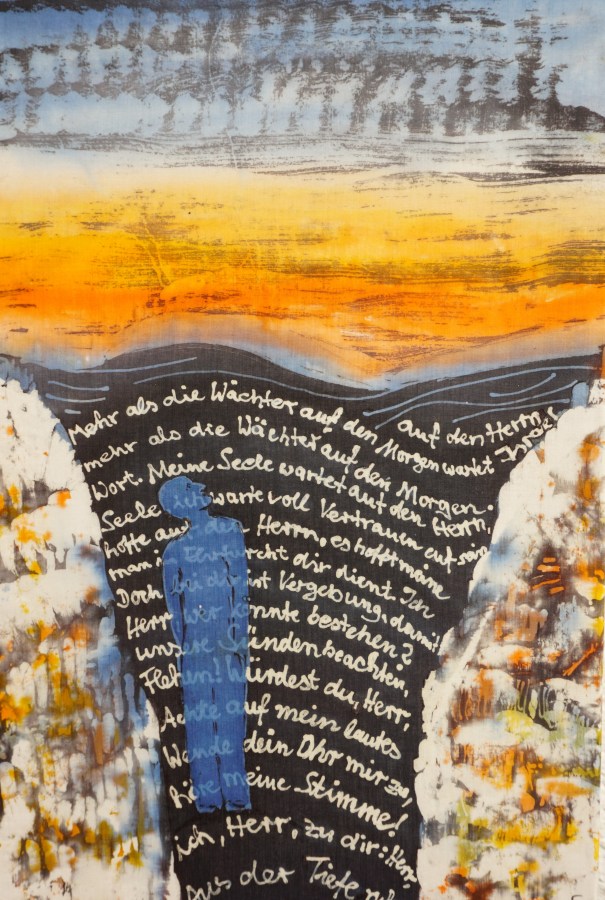 Aus der Tiefe
ich, Herr, zu dir: Herr
Höre meine Stimme!
Wende dein Ohr mir zu,
Achte auf mein lautes
Flehen! Würdest du, Herr,
unsere Sünden beachten,
Herr, wer könnte bestehen?
Doch bei dir ist Vergebung, damit
man in Ehrfurcht dir dient. Ich
hoffe auf den Herrn, es hofft meine
Seele, ich warte voll Vertrauen auf sein
Wort. Meine Seele wartet auf den Herrn,
mehr als die Wächter auf den Morgen.
Mehr als die Wächter auf den Morgen wartet Israel
auf den Herrn